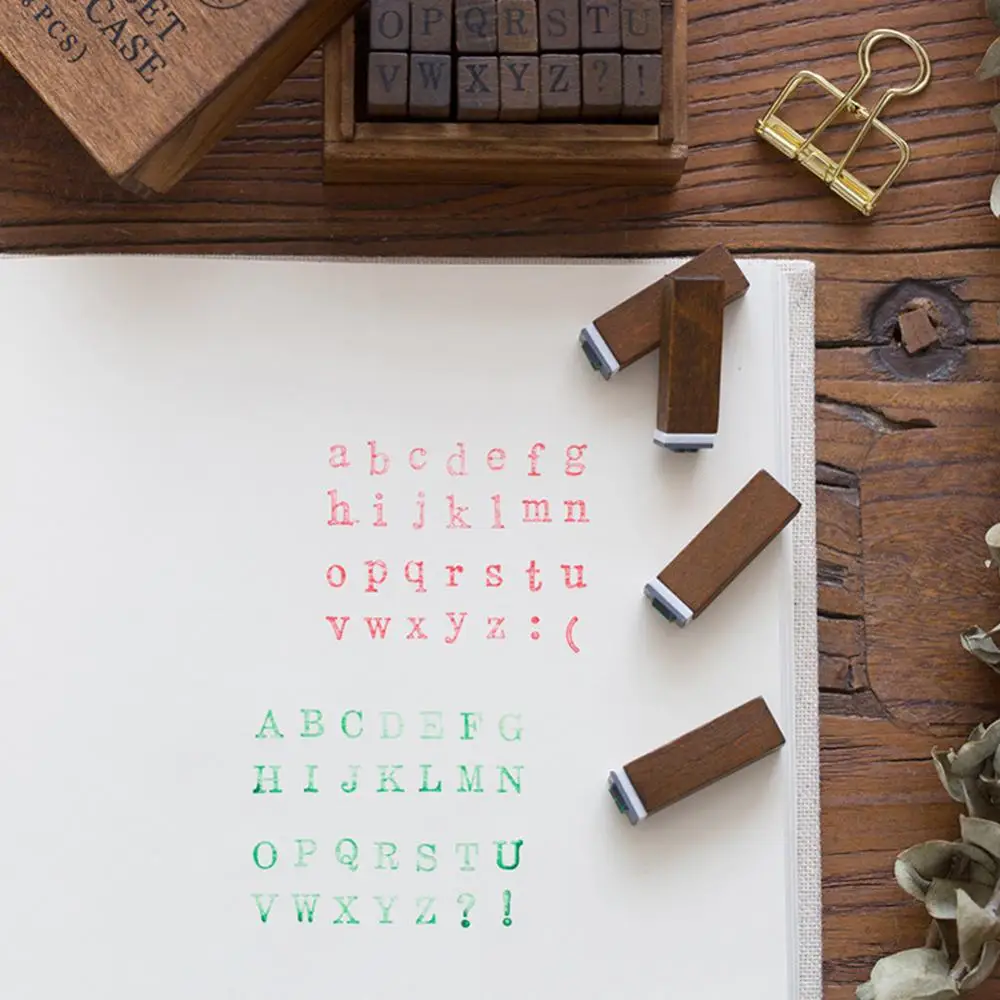 SET
CASE
PCS)
O P Q R S T U
V W X Y Z ? !
a b c d e f g
h i j k l m n
o p q r s t u
v w x y z : (
A B C D E F G
H I J K L M N
O P Q R S T U
V W X Y Z ? !